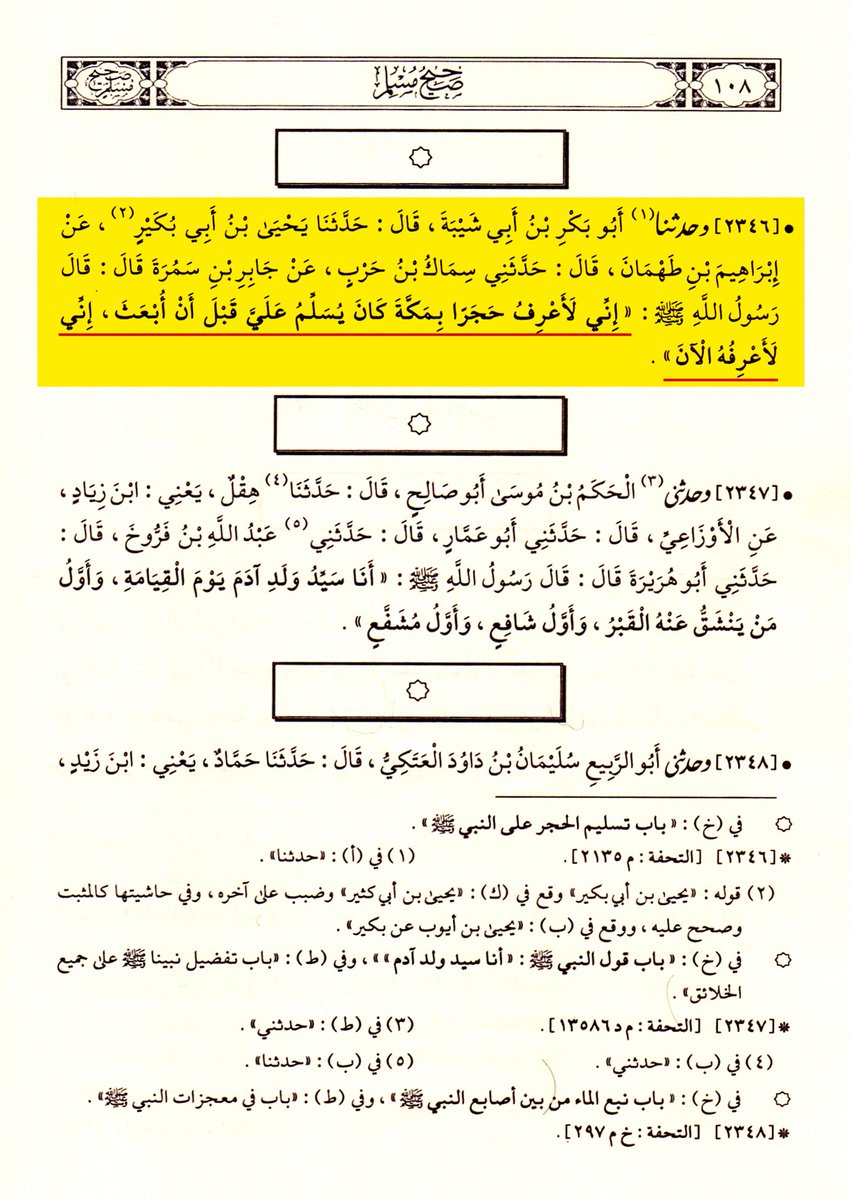 صحيح مسلم
صحيح مسلم
١٠٨
• [٢٣٤٦] وحدثنا(١) أَبُو بَكْرِ بْنُ أَبِي شَيْبَةَ ، قَالَ : حَدَّثَنَا يَحْيَىٰ بْنُ أَبِي بُكَيْرٍ(٢) ، عَنْ
إِبْرَاهِيمَ بْنِ طَهْمَانَ ، قَالَ : حَدَّثَنِي سِمَاكُ بْنُ حَرْبٍ ، عَنْ جَابِرِ بْنِ سَمُرَةَ قَالَ : قَالَ
رَسُولُ اللَّهِ ﷺ : « إِنِّي لَأَعْرِفُ حَجَرًا بِمَكَّةَ كَانَ يُسَلِّمُ عَلَيَّ قَبْلَ أَنْ أُبْعَثَ ، إِنِّي
لَأَعْرِفُهُ الْآنَ » .
• [٢٣٤٧] وحدثني(٣) الْحَكَمُ بْنُ مُوسَىٰ أَبُو صَالِحٍ ، قَالَ : حَدَّثَنَا(٤) هِقْلٌ ، يَعْنِي : ابْنَ زِيَادٍ ،
عَنِ الْأَوْزَاعِيِّ ، قَالَ : حَدَّثَنِي أَبُو عَمَّارٍ ، قَالَ : حَدَّثَنِي(٥) عَبْدُ اللَّهِ بْنُ فَرُّوخَ ، قَالَ :
حَدَّثَنِي أَبُو هُرَيْرَةَ قَالَ : قَالَ رَسُولُ اللَّهِ ﷺ : « أَنَا سَيِّدُ وَلَدِ آدَمَ يَوْمَ الْقِيَامَةِ ، وَأَوَّلُ
مَنْ يَنْشَقُّ عَنْهُ الْقَبْرُ ، وَأَوَّلُ شَافِعٍ ، وَأَوَّلُ مُشَفَّعٍ » .
• [٢٣٤٨] وحدثني أَبُو الرَّبِيعِ سُلَيْمَانُ بْنُ دَاوُدَ الْعَتَكِيُّ ، قَالَ : حَدَّثَنَا حَمَّادٌ ، يَعْنِي : ابْنَ زَيْدٍ ،
۞ في (خ) : « باب تسليم الحجر على النبي ﷺ » .
* [٢٣٤٦] [التحفة : م ٢١٣٥]. (١) في (أ) : «حدثنا» .
(٢) قوله : «يحيىٰ بن أبي بكير» وقع في (ك) : «يحيىٰ بن أبي كثير» وضبب علىٰ آخره ، وفي حاشيتها كالمثبت
وصحح عليه ، ووقع في (ب) : «يحيىٰ بن أيوب عن بكير» .
۞ في (خ) : « باب قول النبي ﷺ : «أنا سيد ولد آدم» » ، وفي (ط) : «باب تفضيل نبينا ﷺ علىٰ جميع
الخلائق» .
* [٢٣٤٧] [التحفة : م د ١٣٥٨٦]. (٣) في (ط) : «حدثني» .
(٤) في (ب) : «حدثني» . (٥) في (ب) : «حدثنا» .
۞ في (خ) : « باب نبع الماء من بين أصابع النبي ﷺ » ، وفي (ط) : «باب في معجزات النبي ﷺ» .
* [٢٣٤٨] [التحفة : خ م ٢٩٧].